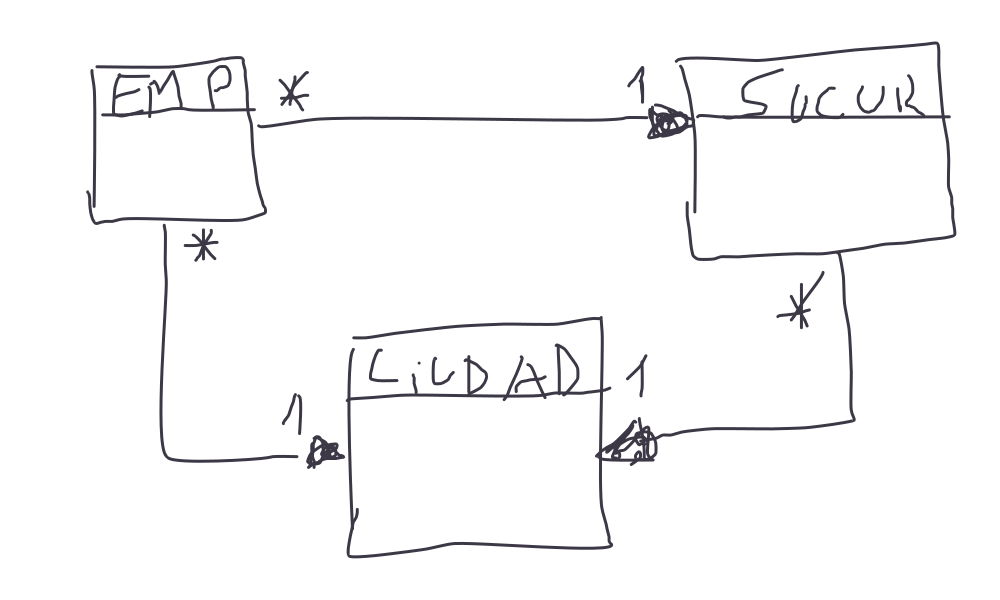 EMP * 1 SUCUR
* *
CiUDAD 1
1